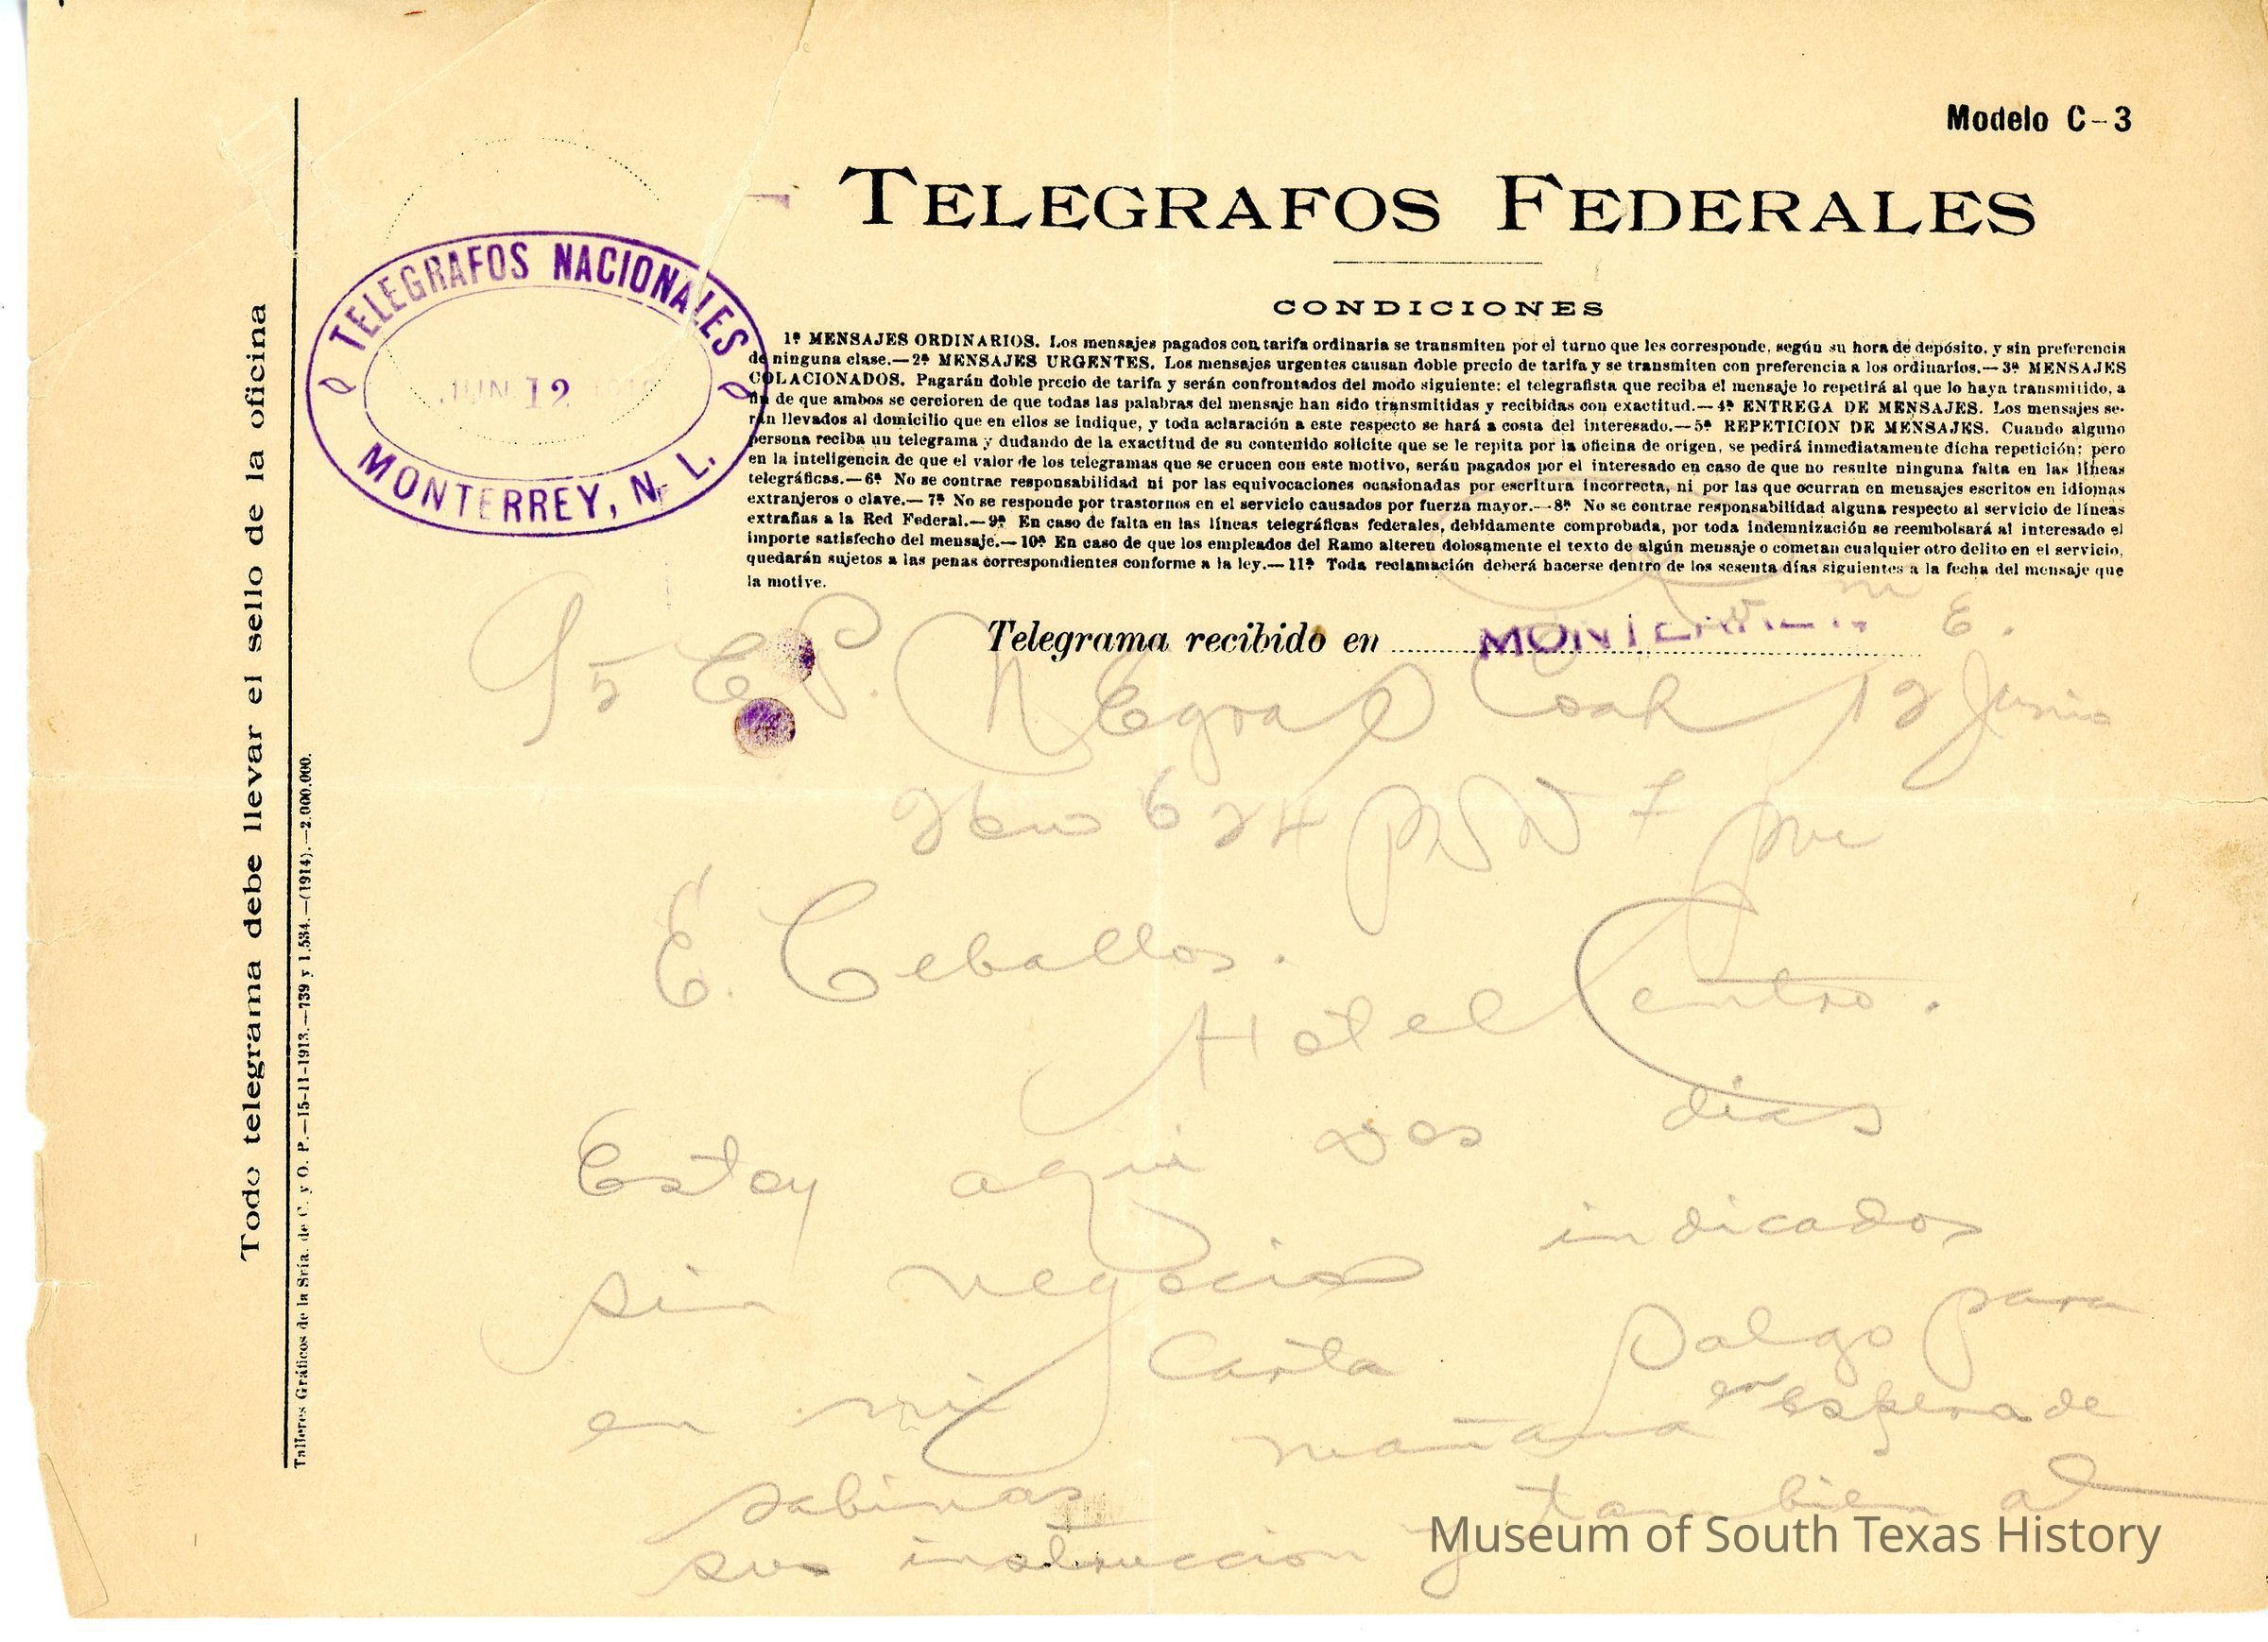 Modelo C-3
TELEGRAFOS FEDERALES
CONDICIONES
1ª MENSAJES ORDINARIOS. Los mensajes pagados con tarifa ordinaria se transmiten por el turno que les corresponde, según su hora de depósito, y sin preferencia
de ninguna clase.—2ª MENSAJES URGENTES. Los mensajes urgentes causan doble precio de tarifa y se transmiten con preferencia a los ordinarios.—3ª MENSAJES
COLACIONADOS. Pagarán doble precio de tarifa y serán confrontados del modo siguiente: el telegrafista que reciba el mensaje lo repetirá al que lo haya transmitido, a
fin de que ambos se cercioren de que todas las palabras del mensaje han sido transmitidas y recibidas con exactitud.—4ª ENTREGA DE MENSAJES. Los mensajes se-
rán llevados al domicilio que en ellos se indique, y toda aclaración a este respecto se hará a costa del interesado.—5ª REPETICION DE MENSAJES. Cuando alguno
persona reciba un telegrama y dudando de la exactitud de su contenido solicite que se le repita por la oficina de origen, se pedirá inmediatamente dicha repetición; pero
en la inteligencia de que el valor de los telegramas que se crucen con este motivo, serán pagados por el interesado en caso de que no resulte ninguna falta en las líneas
telegráficas.—6ª No se contrae responsabilidad ni por las equivocaciones ocasionadas por escritura incorrecta, ni por las que ocurran en mensajes escritos en idiomas
extranjeros o clave.—7ª No se responde por trastornos en el servicio causados por fuerza mayor.—8ª No se contrae responsabilidad alguna respecto al servicio de líneas
extrañas a la Red Federal.—9ª En caso de falta en las líneas telegráficas federales, debidamente comprobada, por toda indemnización se reembolsará al interesado el
importe satisfecho del mensaje.—10ª En caso de que los empleados del Ramo alteren dolosamente el texto de algún mensaje o cometan cualquier otro delito en el servicio,
quedarán sujetos a las penas correspondientes conforme a la ley.—11ª Toda reclamación deberá hacerse dentro de los sesenta días siguientes a la fecha del mensaje que
la motive.
TELEGRAFOS NACIONALES
JUN 12
MONTERREY, N. L.
Todo telegrama debe llevar el sello de la oficina
Talleres Gráficos de la Sría. de C. y O. P.—15-11-1913.—739 y 1,534.—(1914).—2.000.000.
Telegrama recibido en MONTERREY
95 E P. Negras Coah 12 Junio
624 7
E. Ceballos.
Hotel Centro.
Estoy aqui dos dias
sin negocio indicados
en mi Carta Salgo para
sabinas mañana en espera de
sus instruccion y tambien al
Museum of South Texas History